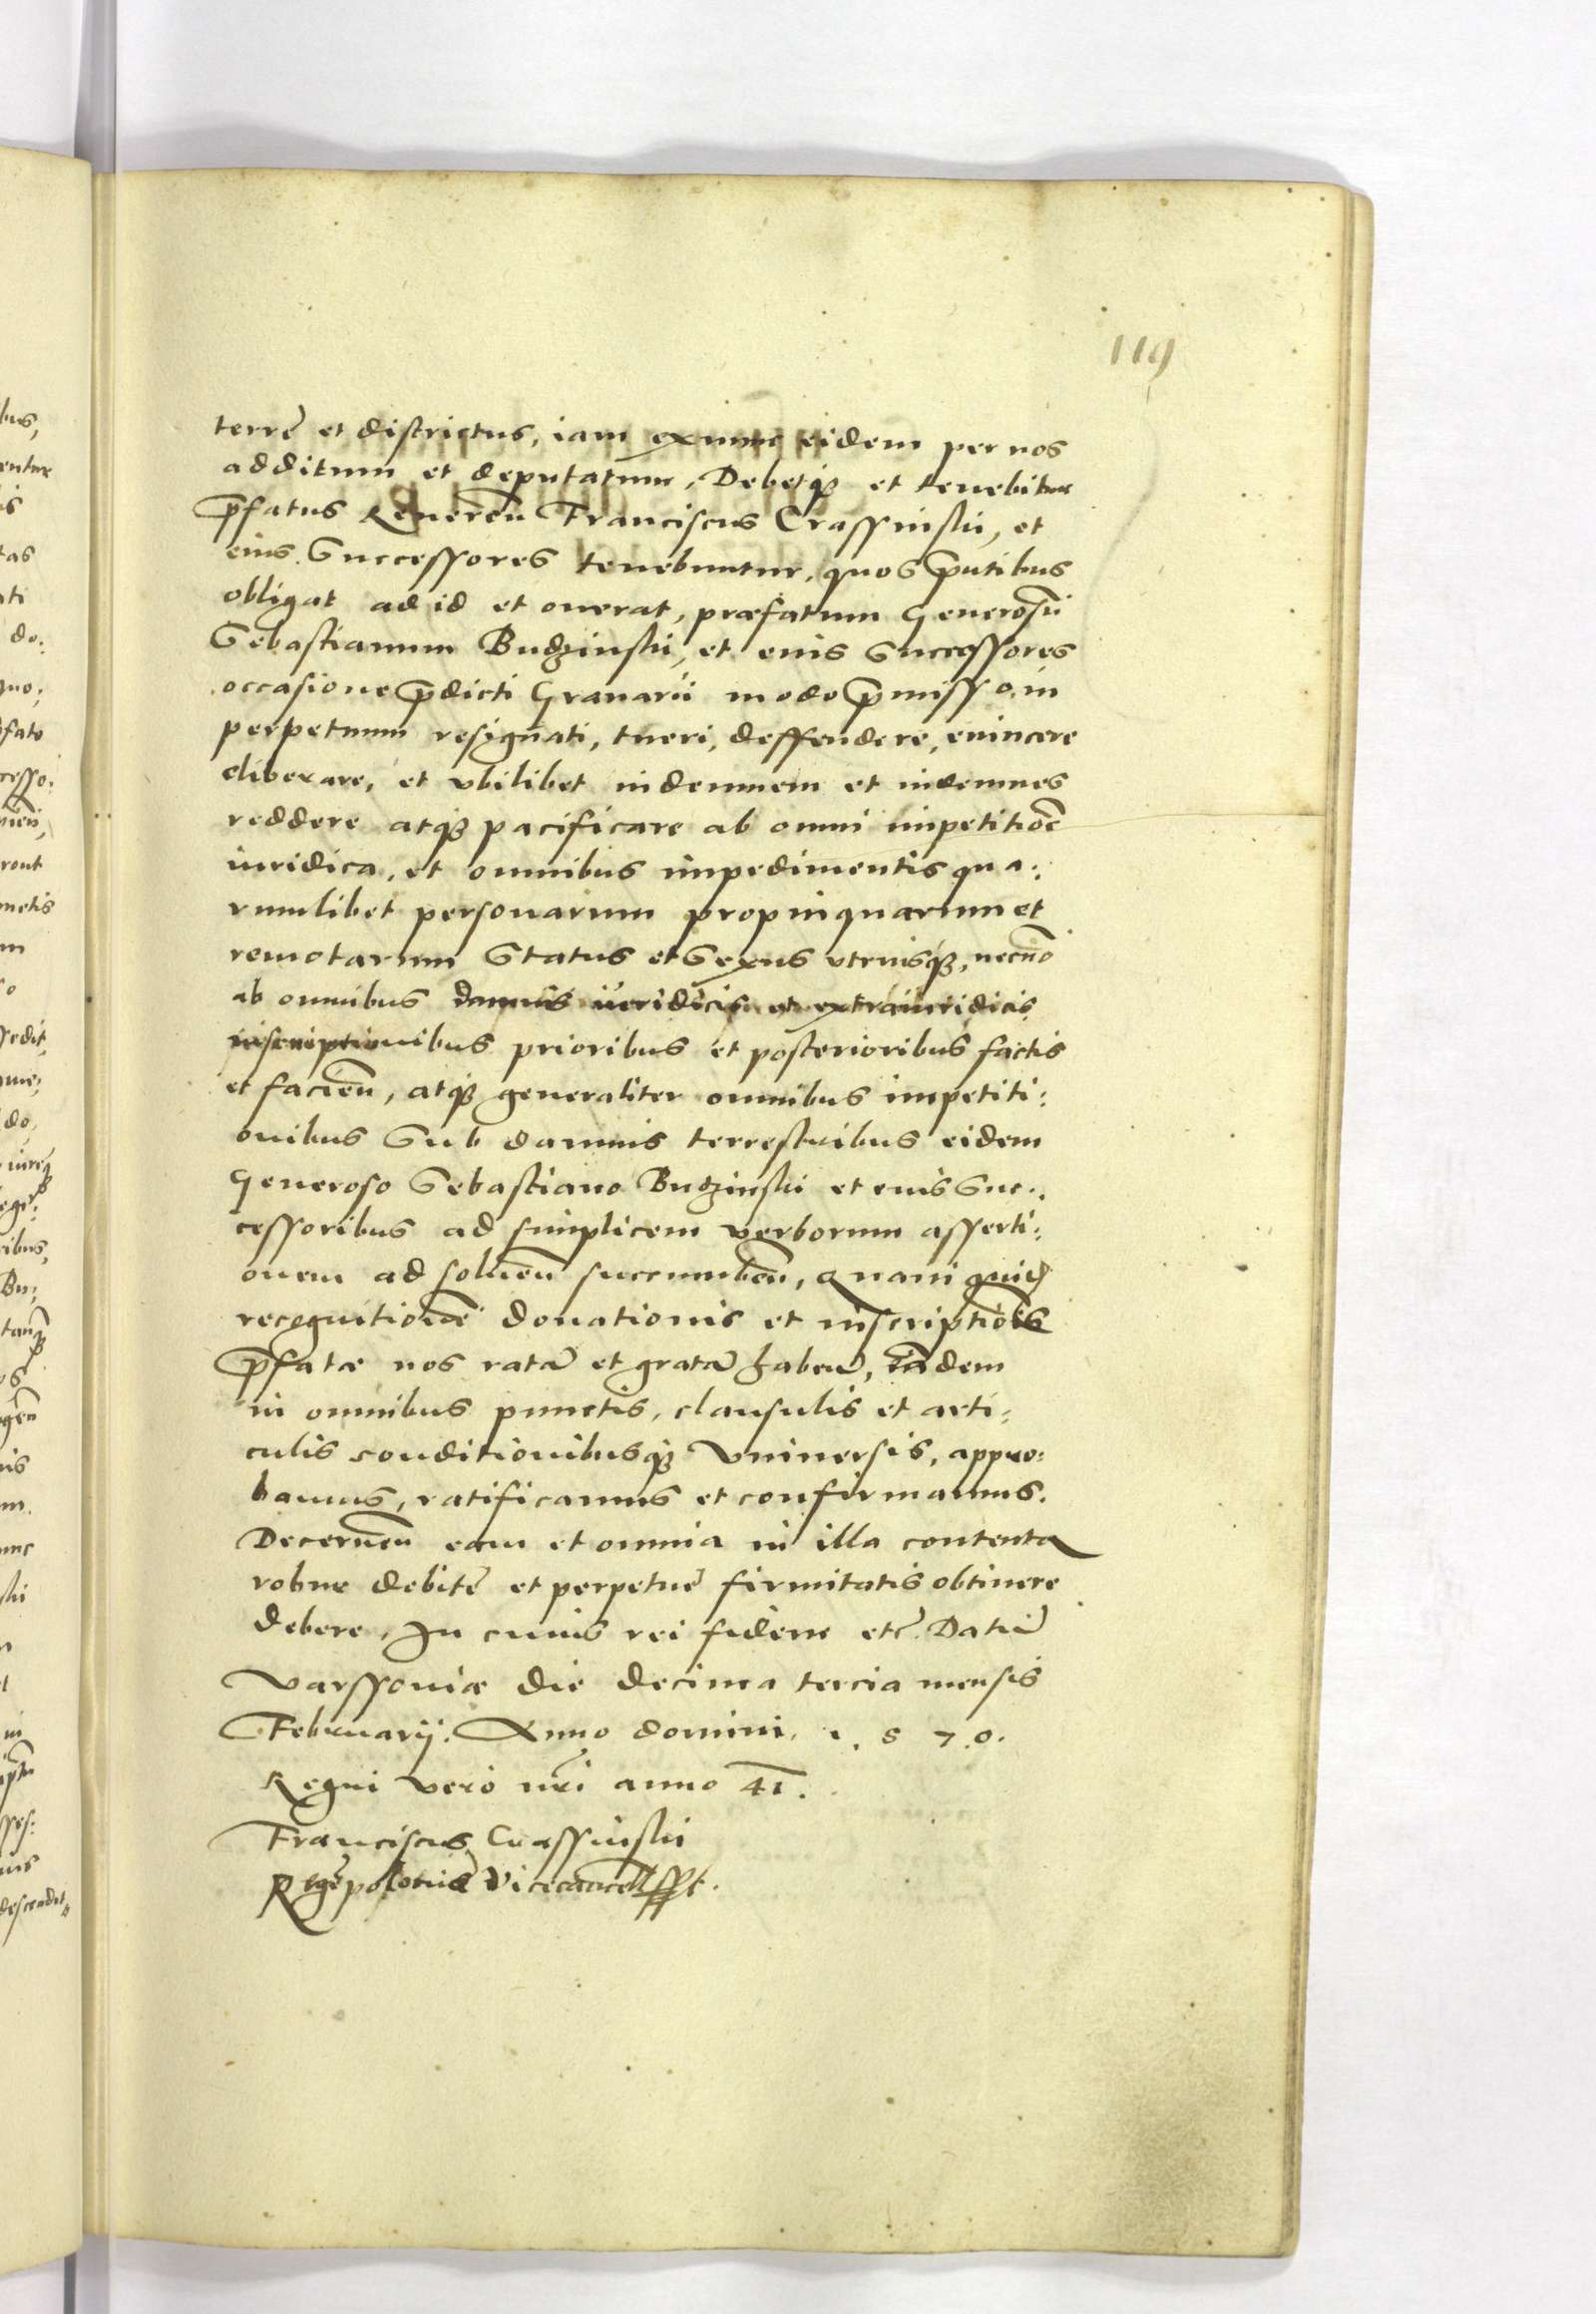 119
terrę et districtus, iam exnunc eidem per nos
additum et deputatum, Debetq3 et tenebitur
p̄fatus Reueren̄ Franciscus Crassinskj, et
eius Successores tenebuntur, quos p̄ntibus
obligat ad id et onerat, præfatum Generosū
Sebastianum Budzinskj, et eius Successores
occasione p̄dicti Granarij modo p̄misso in
perpetuum resignati, tueri, deffendere, euincere
eliberare, et vbilibet indemnem et indemnes
reddere atq3 pacificare ab omni impetitiōe
iuridica, et omnibus impedimentis qua:
rumlibet personarum propinquarum et
remotarum Status et Sexus vtriusq3, necnō
ab omnibus damnis iuridicis et extraiuridicis
inscriptionibus prioribus et posterioribus factis
et facien̄, atq3 generaliter omnibus impetiti:
onibus Sub damnis terrestribus eidem
Generoso Sebastiano Budzinskj et eius Suc:
cessoribus ad simplicem verborum asserti:
onem ad soluen̄ succumben̄, Quam quid
recognitionē donationis et inscriptiōis
p̄fatæ nos ratā et gratā haben̄, eādem
in omnibus punctis, clausulis et arti:
culis conditionibusq3 vniuersis, appro:
bamus, ratificamus et confirmamus.
Decernen̄ eam et omnia in illa contenta
robur debitę et perpetuę firmitatis obtinere
debere, In cuius rei fidem etc̄. Datū
Varssouiæ die decima tercia mensis
Februarij. Anno domini. 1. 5 7. 0.
Regni vero nr̄i anno 41.
Franciscus Crassinskj
Regē polonię Vicecancell sspt.